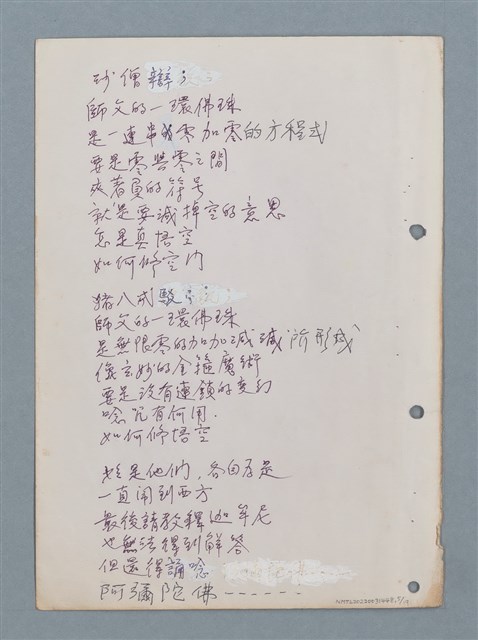 沙僧辯：
師父的一環佛珠
是一連串零加零的方程式
要是零與零之間
夾著負的符号
就是要減掉空的意思
怎是真悟空
如何修空门
豬八戒駁：
師父的一環佛珠
是無限零的加加減減所形成
像玄妙的金箍魔術
要是沒有連鎖的变幻
唸咒有何用.
如何修悟空
於是他們，各自为是
一直闹到西方
最後請教釋迦牟尼
也無法得到解答
但還得誦唸
阿彌陀佛------